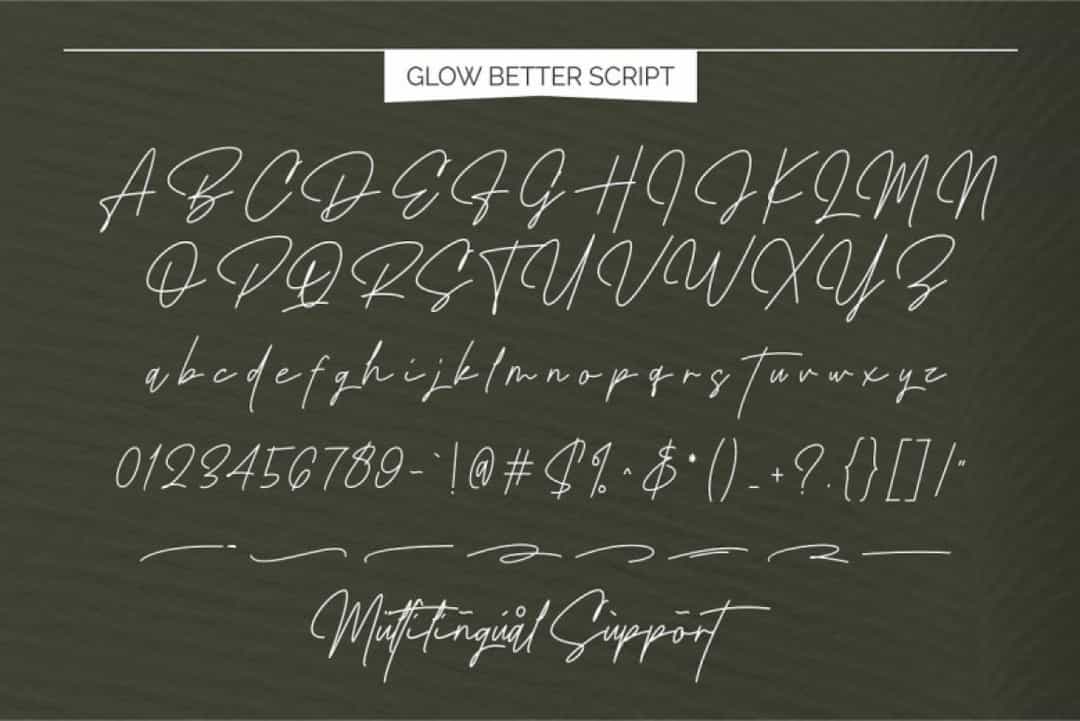 GLOW BETTER SCRIPT
A B C D E F G H I J K L M N
O P Q R S T U V W X Y Z
a b c d e f g h i j k l m n o p q r s t u v w x y z
0123456789-`!@#$%^&*()_+?.{}[]/"
Mültîlīngúål Sùppõrt